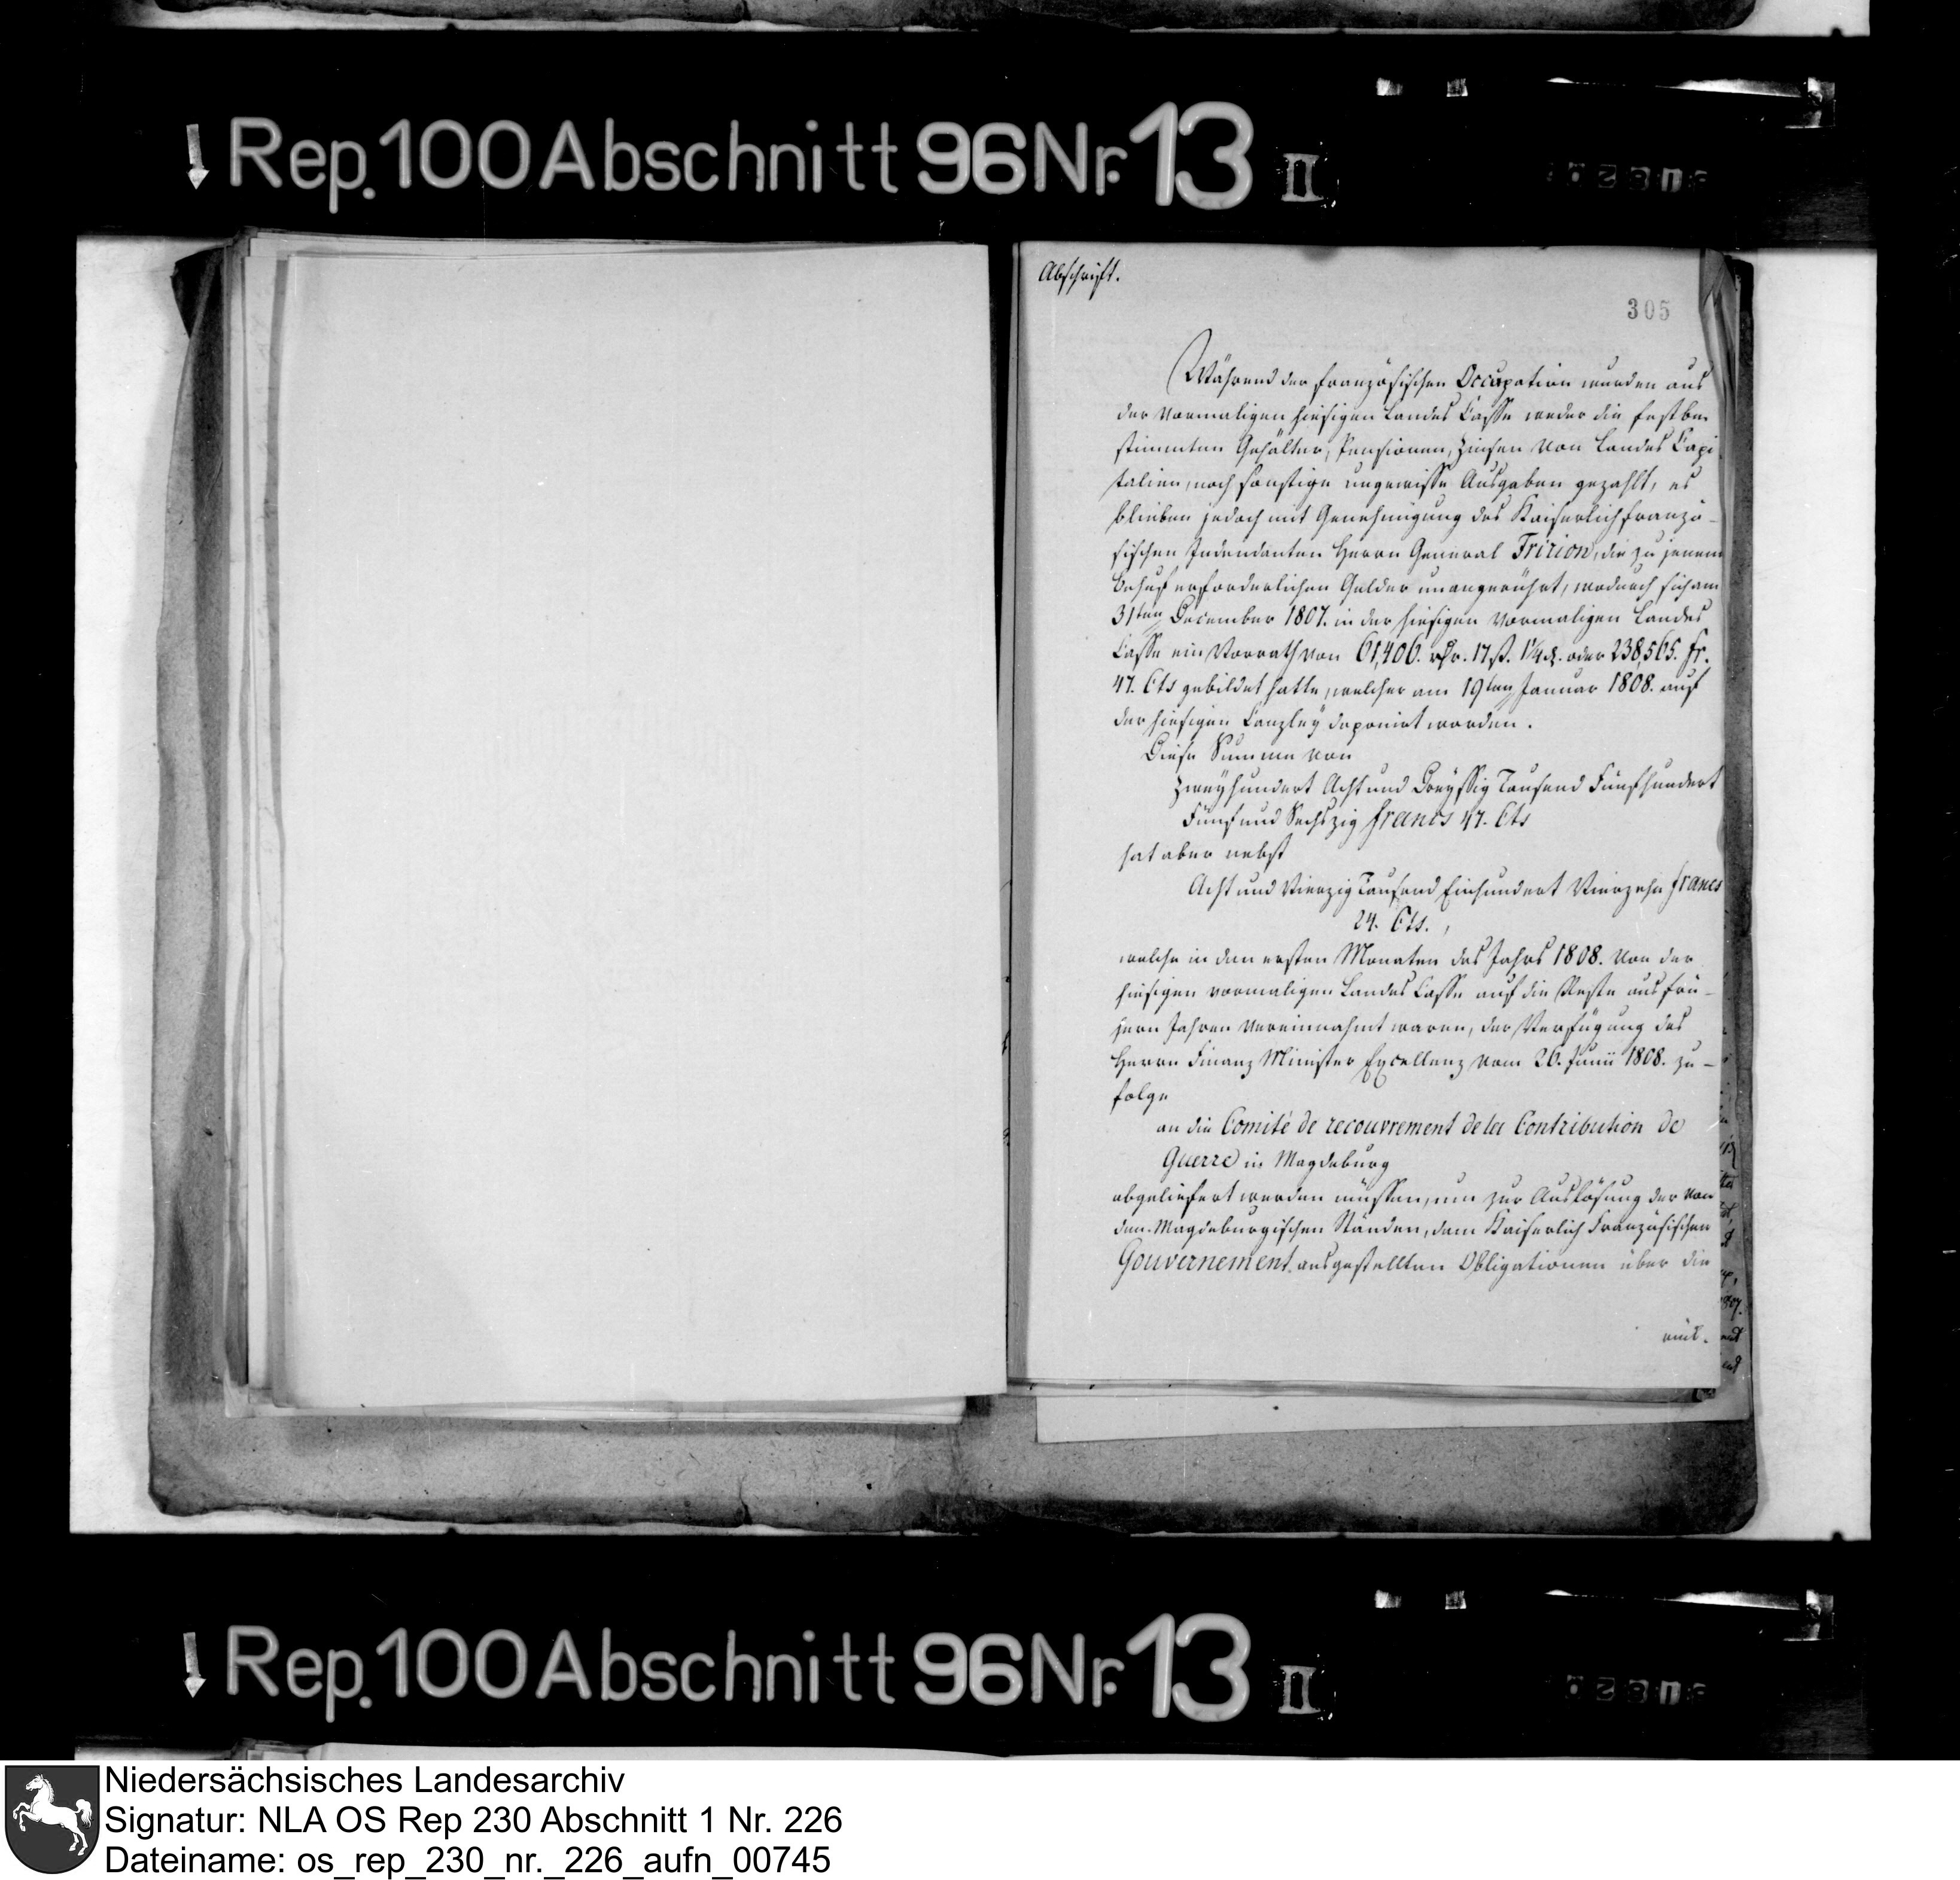 Rep. 100 Abschnitt 96 Nr. 13 II
Abschrift.
305
Während der französischen Occupation wurden aus
der vormaligen hiesigen Landes Casse weder die fest be
stimmten Gehälter, Pensionen, Zinsen von Landes Capi
talien, noch sonstige ungewisse Ausgaben gezahlt, es
blieben jedoch mit Genehmigung des Kaiserlich franzö-
sischen Indendanten Herrn General Fririon, die zu jenem
Behuf erforderlichen Gelder unangerührt, wodurch sich am
31ten December 1807. in der hiesigen vormaligen Landes
Casse ein Vorrath von 61,406. rthr. 17 ß. 1¼ d. oder 238,565. fr.
47. Cts gebildet hatte, welcher am 19ten Januar 1808. auf
der hiesigen Canzley deponirt worden.
Diese Summe von
Zweyhundert Acht und Dreyssig Tausend Fünfhundert
Fünf und Sechszig francs 47. Cts
hat aber nebst
Acht und Vierzig Tausend Einhundert Vierzehn francs
24. Cts.,
welche in den ersten Monaten des Jahrs 1808. von der
hiesigen vormaligen Landes Casse auf die Reste aus frü-
hern Jahren vereinnahmt waren, der Verfügung des
Herrn Finanz Minister Excellenz vom 26. Junii 1808. zu-
folge
an die Comité de recouvrement de la Contribution de
Guerre in Magdeburg
abgeliefert werden müssen, um zur Auslösung der von
den Magdeburgischen Ständen, dem Kaiserlich Französischen
Gouvernement ausgestellten Obligationen über die
rück-
Rep. 100 Abschnitt 96 Nr. 13 II
Niedersächsisches Landesarchiv
Signatur: NLA OS Rep 230 Abschnitt 1 Nr. 226
Dateiname: os_rep_230_nr._226_aufn_00745